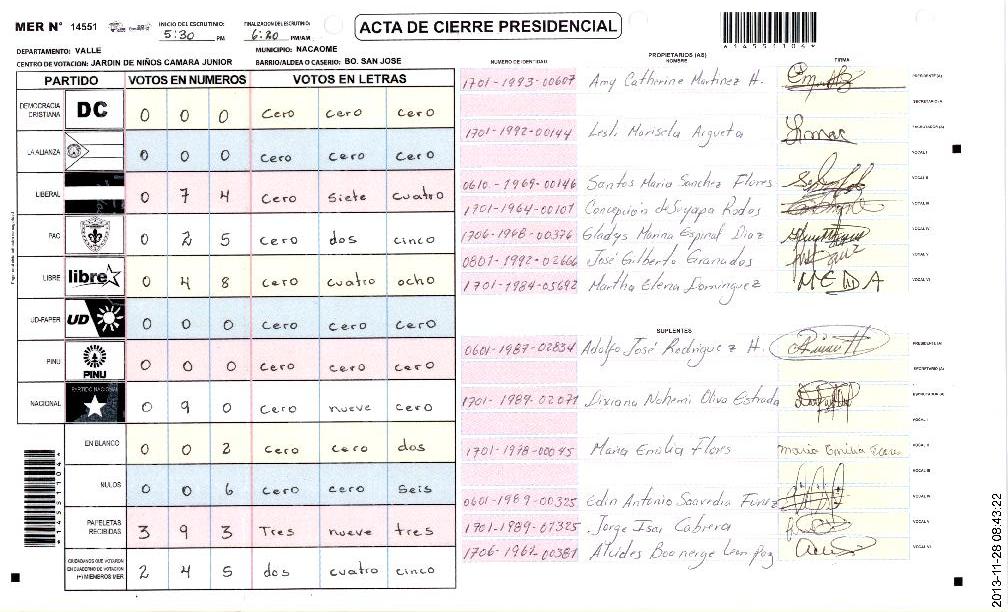 MER N° 14551
INICIO DEL ESCRUTINIO: 5:30 PM
FINALIZACION DEL ESCRUTINIO: 6:20 PM/AM
ACTA DE CIERRE PRESIDENCIAL
DEPARTAMENTO: VALLE
MUNICIPIO: NACAOME
CENTRO DE VOTACION: JARDIN DE NIÑOS CAMARA JUNIOR
BARRIO/ALDEA O CASERIO: BO. SAN JOSE
PARTIDO VOTOS EN NUMEROS VOTOS EN LETRAS
DEMOCRACIA CRISTIANA DC 0 0 0 Cero Cero Cero
LA ALIANZA 0 0 0 Cero Cero Cero
LIBERAL 0 7 4 Cero Siete Cuatro
PAC 0 2 5 Cero dos cinco
LIBRE libre 0 4 8 Cero cuatro ocho
UD-FAPER UD 0 0 0 Cero Cero Cero
PINU PINU 0 0 0 Cero Cero Cero
NACIONAL PARTIDO NACIONAL 0 9 0 Cero nueve Cero
EN BLANCO 0 0 2 Cero Cero dos
NULOS 0 0 6 Cero Cero Seis
PAPELETAS RECIBIDAS 3 9 3 Tres nueve tres
CIUDADANOS QUE VOTARON EN CUADERNO DE VOTACION (+) MIEMBROS MER 2 4 5 dos cuatro cinco
NUMERO DE IDENTIDAD PROPIETARIOS (AS) NOMBRE FIRMA
1701-1993-00607 Amy Catherine Martinez H. PRESIDENTE (A)
SECRETARIO/A
1701-1992-00144 Lesli Marisela Argueta ESCRUTADOR (A)
VOCAL I
0610-1969-00146 Santos Maria Sanchez Flores VOCAL II
1701-1964-00107 Concepción de Suyapa Rodas VOCAL III
1706-1948-00376 Gladys Marina Espinal Diaz VOCAL IV
0801-1992-02666 José Gilberto Granados VOCAL V
1701-1984-05692 Martha Elena Dominguez MEDA VOCAL VI
SUPLENTES
0601-1987-02834 Adolfo José Rodriguez H. PRESIDENTE (A)
SECRETARIO (A)
1701-1989-02071 Dixiana Nohemi Oliva Estrada ESCRUTADOR (A)
VOCAL I
1701-1978-00045 Maria Emilia Flores VOCAL II
VOCAL III
0601-1989-00325 Edin Antonio Saavedra Funez VOCAL IV
1701-1989-07325 Jorge Isai Cabrera VOCAL V
1706-1962-00381 VOCAL VI
2013-11-28 08:43:22